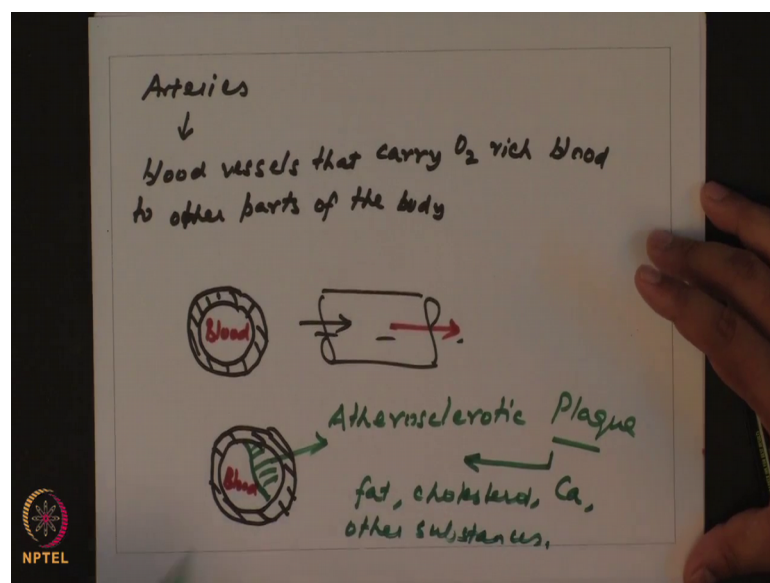 Arteries
↓
blood vessels that carry O₂ rich blood
to other parts of the body
Blood
Atherosclerotic Plaque
Blood
fat, cholesterol, Ca,
other substances.
NPTEL